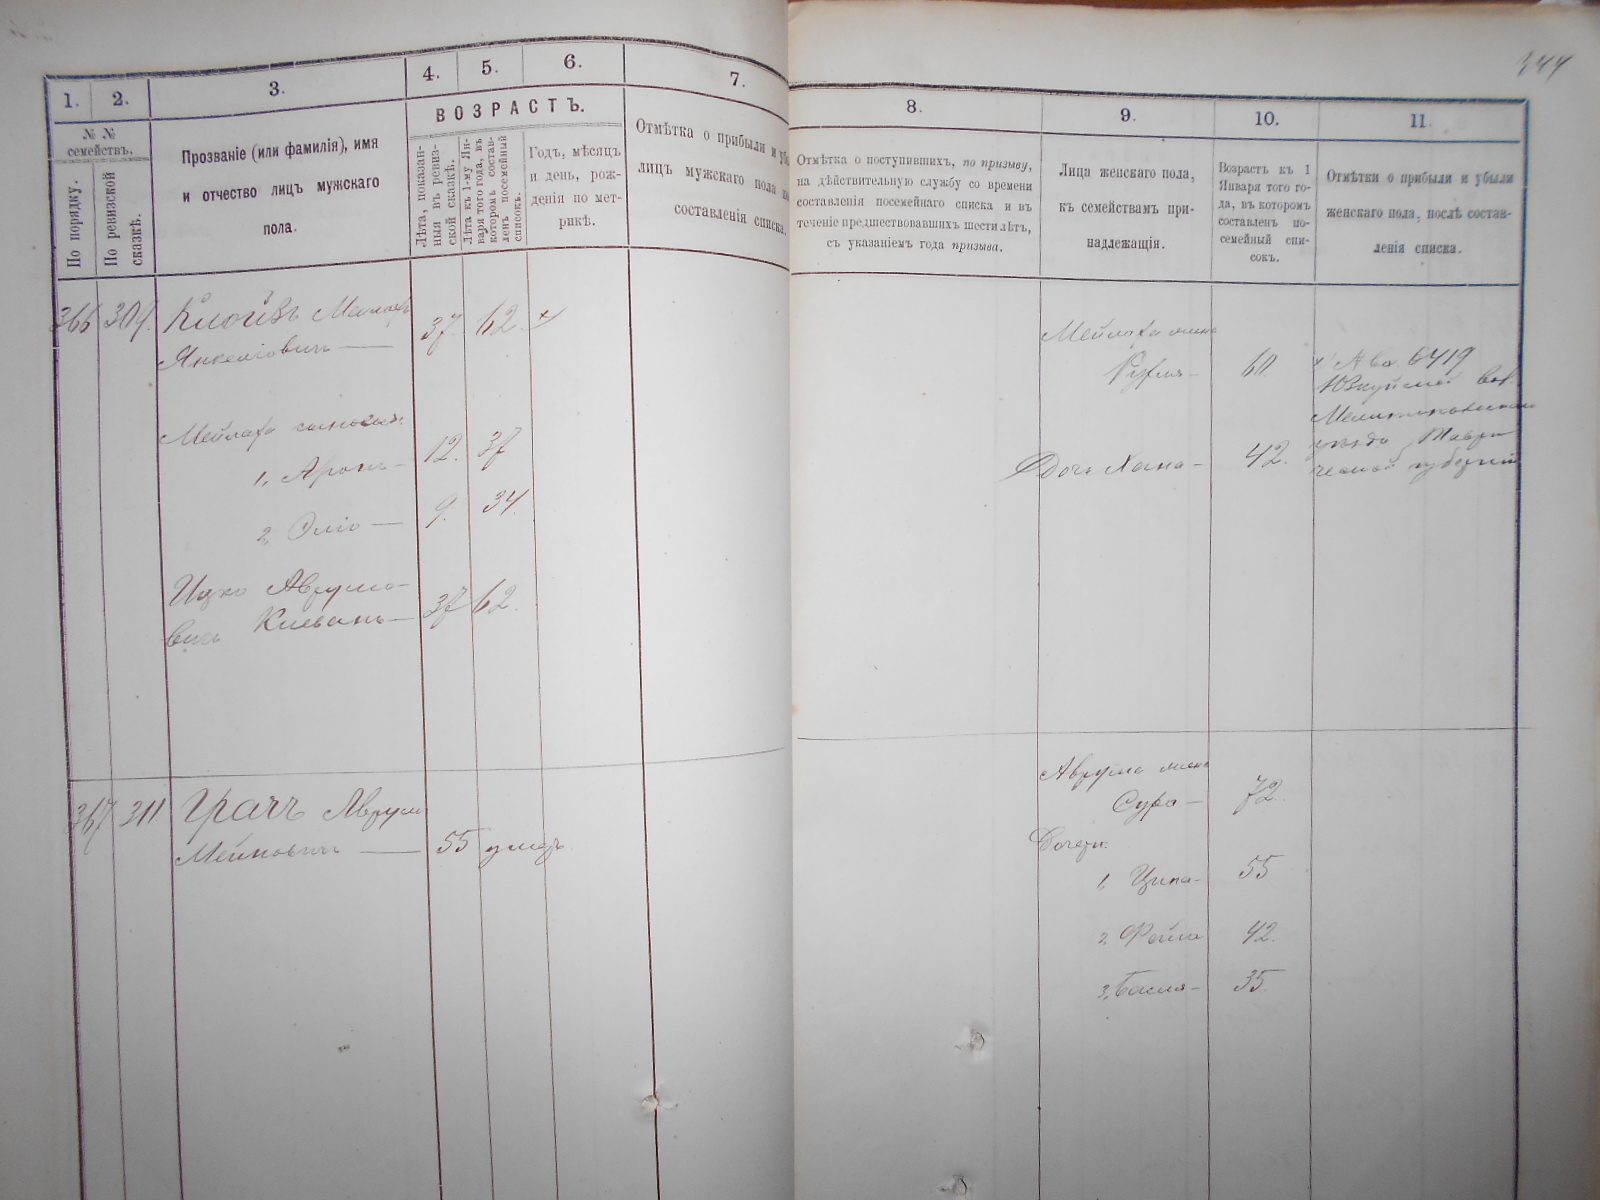 344
1.
2.
3.
4.
5.
6.
7.
8.
9.
10.
11.
№ №
семействъ.
По порядку.
По ревизской
сказкѣ.
Прозваніе (или фамилія), имя
и отчество лицъ мужскаго
пола.
ВОЗРАСТЪ.
Лѣта, показан-
ныя въ ревиз-
ской сказкѣ.
Лѣта къ 1-му Ян-
варя того года, въ
которомъ состав-
ленъ посемейный
списокъ.
Годъ, мѣсяцъ
и день, рож-
денія по мет-
рикѣ.
Отмѣтка о прибыли и
лицъ мужскаго пола
составленія списка.
Отмѣтка о поступившихъ, по призыву,
на дѣйствительную службу со времени
составленія посемейнаго списка и въ
теченіе предшествовавшихъ шести лѣтъ,
съ указаніемъ года призыва.
Лица женскаго пола,
къ семействамъ при-
надлежащія.
Возрастъ къ 1
Января того го-
да, въ которомъ
составленъ по-
семейный спи-
сокъ.
Отмѣтки о прибыли и убыли
женскаго пола, послѣ состав-
ленія списка.
366 309.
37. 62.
Янкеліовичъ —
Мейлаха сыновья:
1, Аронъ — 12. 37
2, Эліо — 9. 34.
Ицко Аврумо-
вичъ 37 62.
Мейлаха жена
60
Дочь Хана — 42.
№ 6419
уѣзда Таври
ческой губерніи
367 311 Грачъ Аврумъ
55 умеръ.
Аврума жена
Сура — 72.
Дочери:
1, Ципа — 55
2, Фейга 42.
3, Бася — 35.